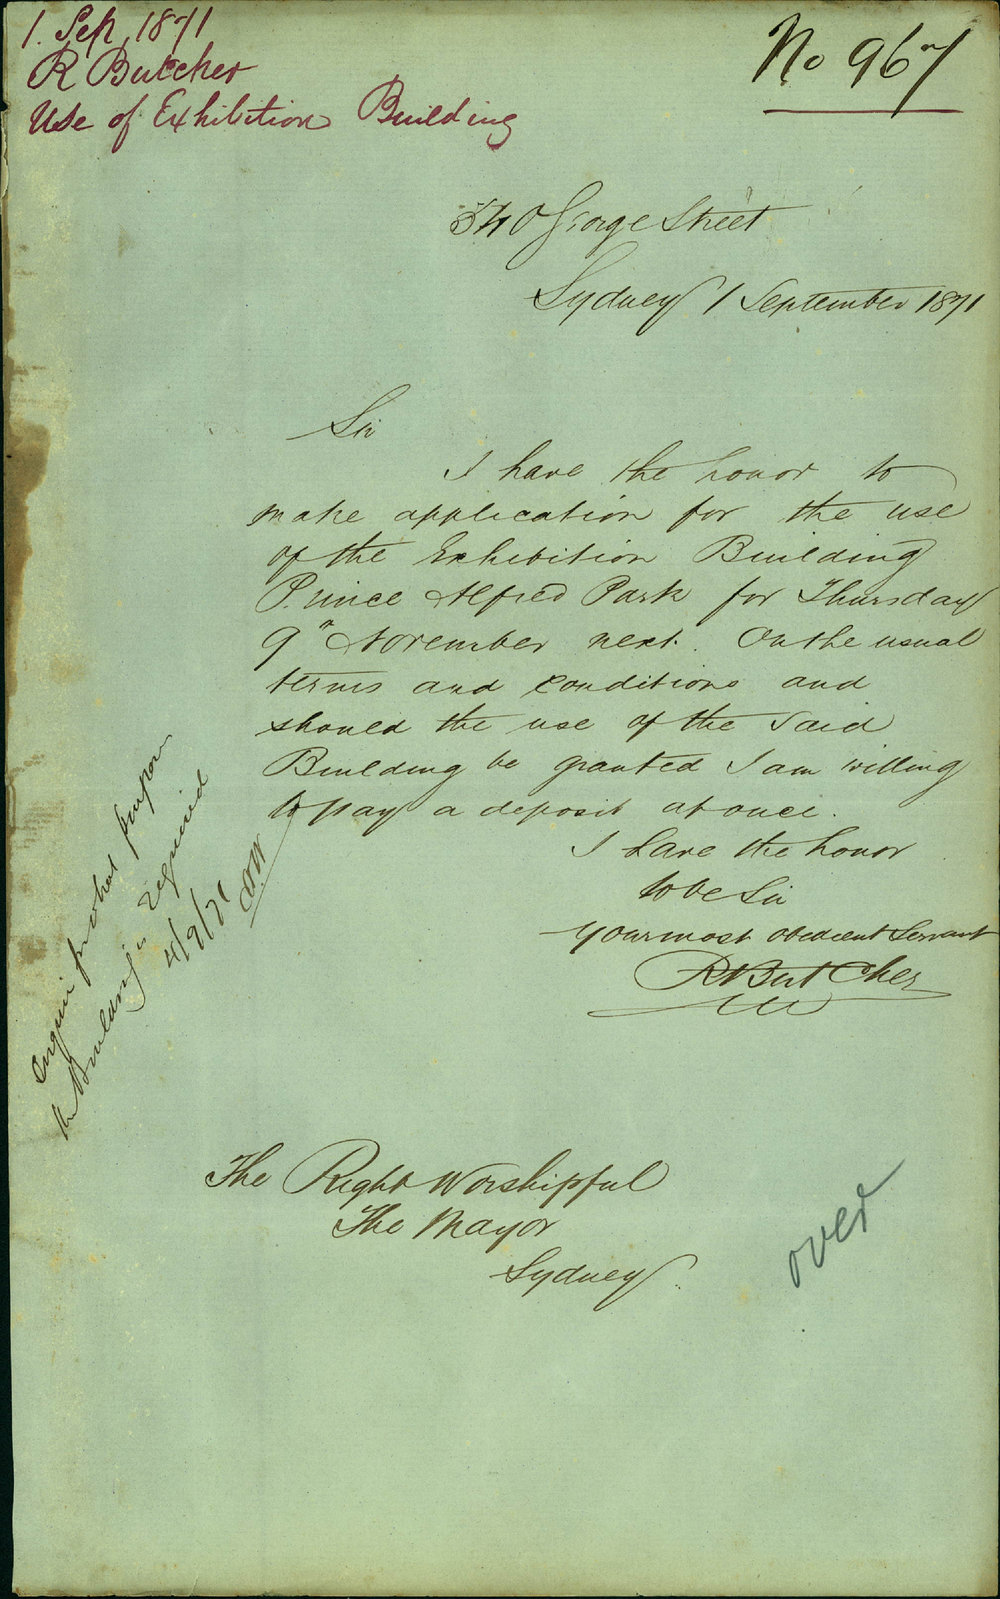 1. Sep 1871
R Butcher
Use of Exhibition Building
No 967
540 George Street
Sydney 1 September 1871
Sir
I have the honor to
make application for the use
of the Exhibition Building
Prince Alfred Park for Thursday
9" November next. On the usual
terms and conditions and
should the use of the said
Building be granted I am willing
to pay a deposit at once.
I have the honor
to be Sir
your most obedient Servant
R Butcher
Enquire for what purpose
the Building is required
4/9/71
The Right Worshipful
The Mayor
Sydney
over